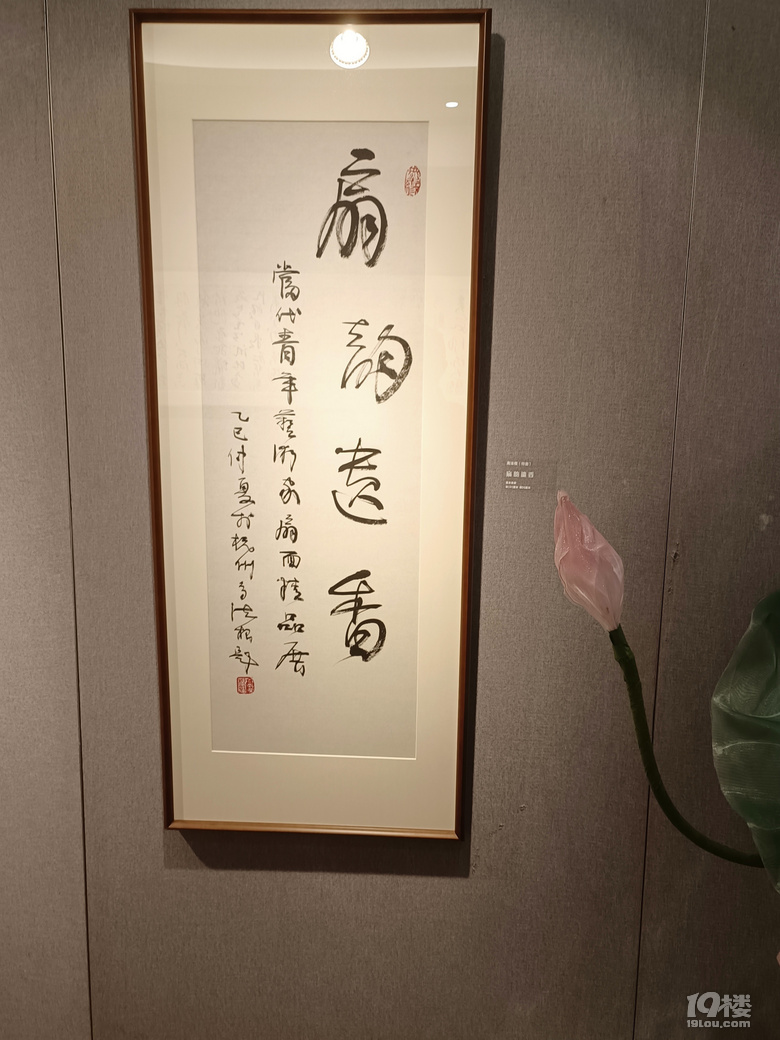 扇韵遗香
當代青年藝術家扇面精品展
乙巳仲夏於杭州
題
扇韵遗香
19楼
19lou.com